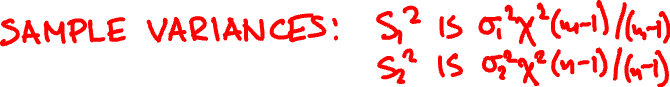 SAMPLE VARIANCES: S₁² IS σ₁²χ²(n-1)/(n-1)
S₂² IS σ₂²χ²(n-1)/(n-1)